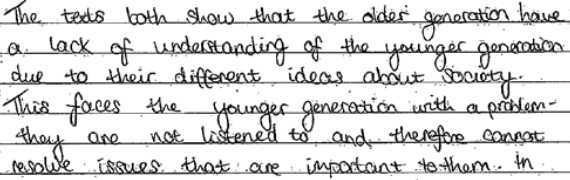 The texts both show that the older generation have
a lack of understanding of the younger generation
due to their different ideas about society.
This faces the younger generation with a problem-
they are not listened to and therefore cannot
resolve issues that are important to them. In